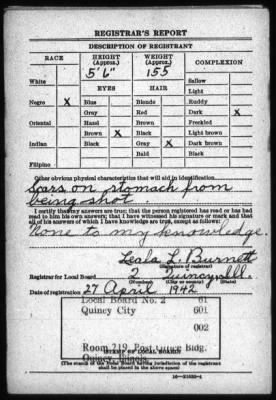 REGISTRAR'S REPORT
DESCRIPTION OF REGISTRANT
RACE HEIGHT (Approx.) WEIGHT (Approx.) COMPLEXION
5' 6" 155
White Sallow
EYES HAIR Light
Negro X Blue Blonde Ruddy
Gray Red Dark X
Oriental Hazel Brown Freckled
Brown X Black Light brown
Indian Black Gray X Dark brown
Bald Black
Filipino
Other obvious physical characteristics that will aid in identification
Scars on stomach from
being shot
I certify that my answers are true; that the person registered has read or has had
read to him his own answers; that I have witnessed his signature or mark and that
all of his answers of which I have knowledge are true, except as follows:
None to my knowledge.
Leala L. Burnett
(Signature of registrar)
Registrar for Local Board 2 Quincy Ill.
(Number) (City or county) (State)
Date of registration 27 April 1942
Local Board No. 2 61
Quincy City 601
002
Room 219, Post Office Bldg.
Quincy, Illinois
(STAMP OF LOCAL BOARD)
(The stamp of the Local Board having jurisdiction of the registrant
shall be placed in the above space)